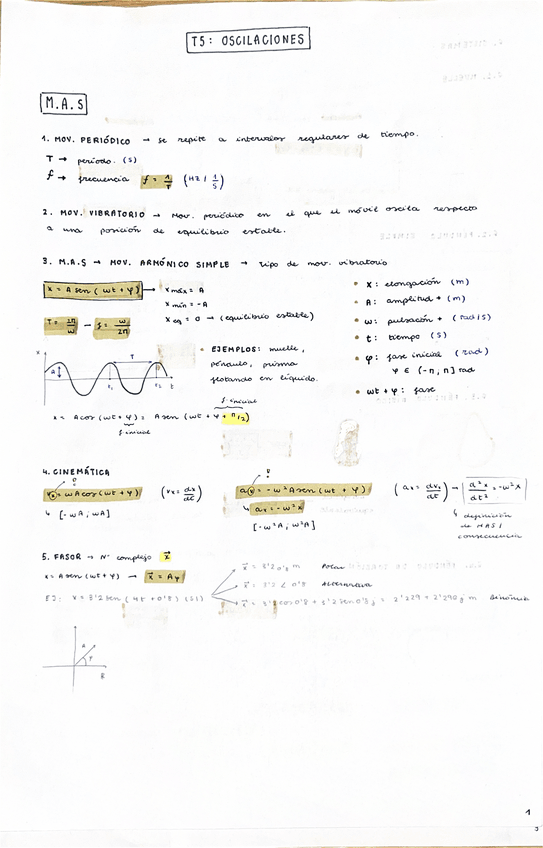 T5: OSCILACIONES
M.A.S
1. MOV. PERIÓDICO → se repite a intervalos regulares de tiempo.
T → período. (s)
f → frecuencia f = 1/T (Hz / 1/s)
2. MOV. VIBRATORIO → Mov. periódico en el que el móvil oscila respecto
a una posición de equilibrio estable.
3. M.A.S → MOV. ARMÓNICO SIMPLE → tipo de mov. vibratorio
x = A sen (ωt + φ) → x máx = A
x mín = -A
x eq = 0 → (equilibrio estable)
T = 2π/ω → f = ω/2π
• X: elongación (m)
• A: amplitud + (m)
• ω: pulsación + (rad/s)
• t: tiempo (s)
• φ: fase inicial (rad)
φ ∈ (-π, π] rad
• ωt + φ: fase
x A T t₁ t₂ t
• EJEMPLOS: muelle,
péndulo, prisma
flotando en líquido.
f. inicial
x = A cos (ωt + φ) = A sen (ωt + φ + π/2)
f. inicial
4. CINEMÁTICA
vₓ = ωA cos (ωt + φ) (vₓ = dx/dt)
↳ [-ωA, ωA]
aₓ = -ω² A sen (ωt + φ) (aₓ = dvₓ/dt) → d²x/dt² = -ω² x
↳ aₓ = -ω² x
[-ω²A, ω²A]
↳ definición
de MAS /
consecuencia
5. FASOR → Nº complejo x⃗
x = A sen (ωt + φ) → x⃗ = Aφ
EJ: x = 3'2 sen (4t + 0'8) (SI)
x⃗ = 3'2 0'8 m Polar
x⃗ = 3'2 ∠ 0'8 Alternativa
x⃗ = 3'2 cos 0'8 + 3'2 sen 0'8 j = 2'229 + 2'290 j m Binómica
A φ R
1
3